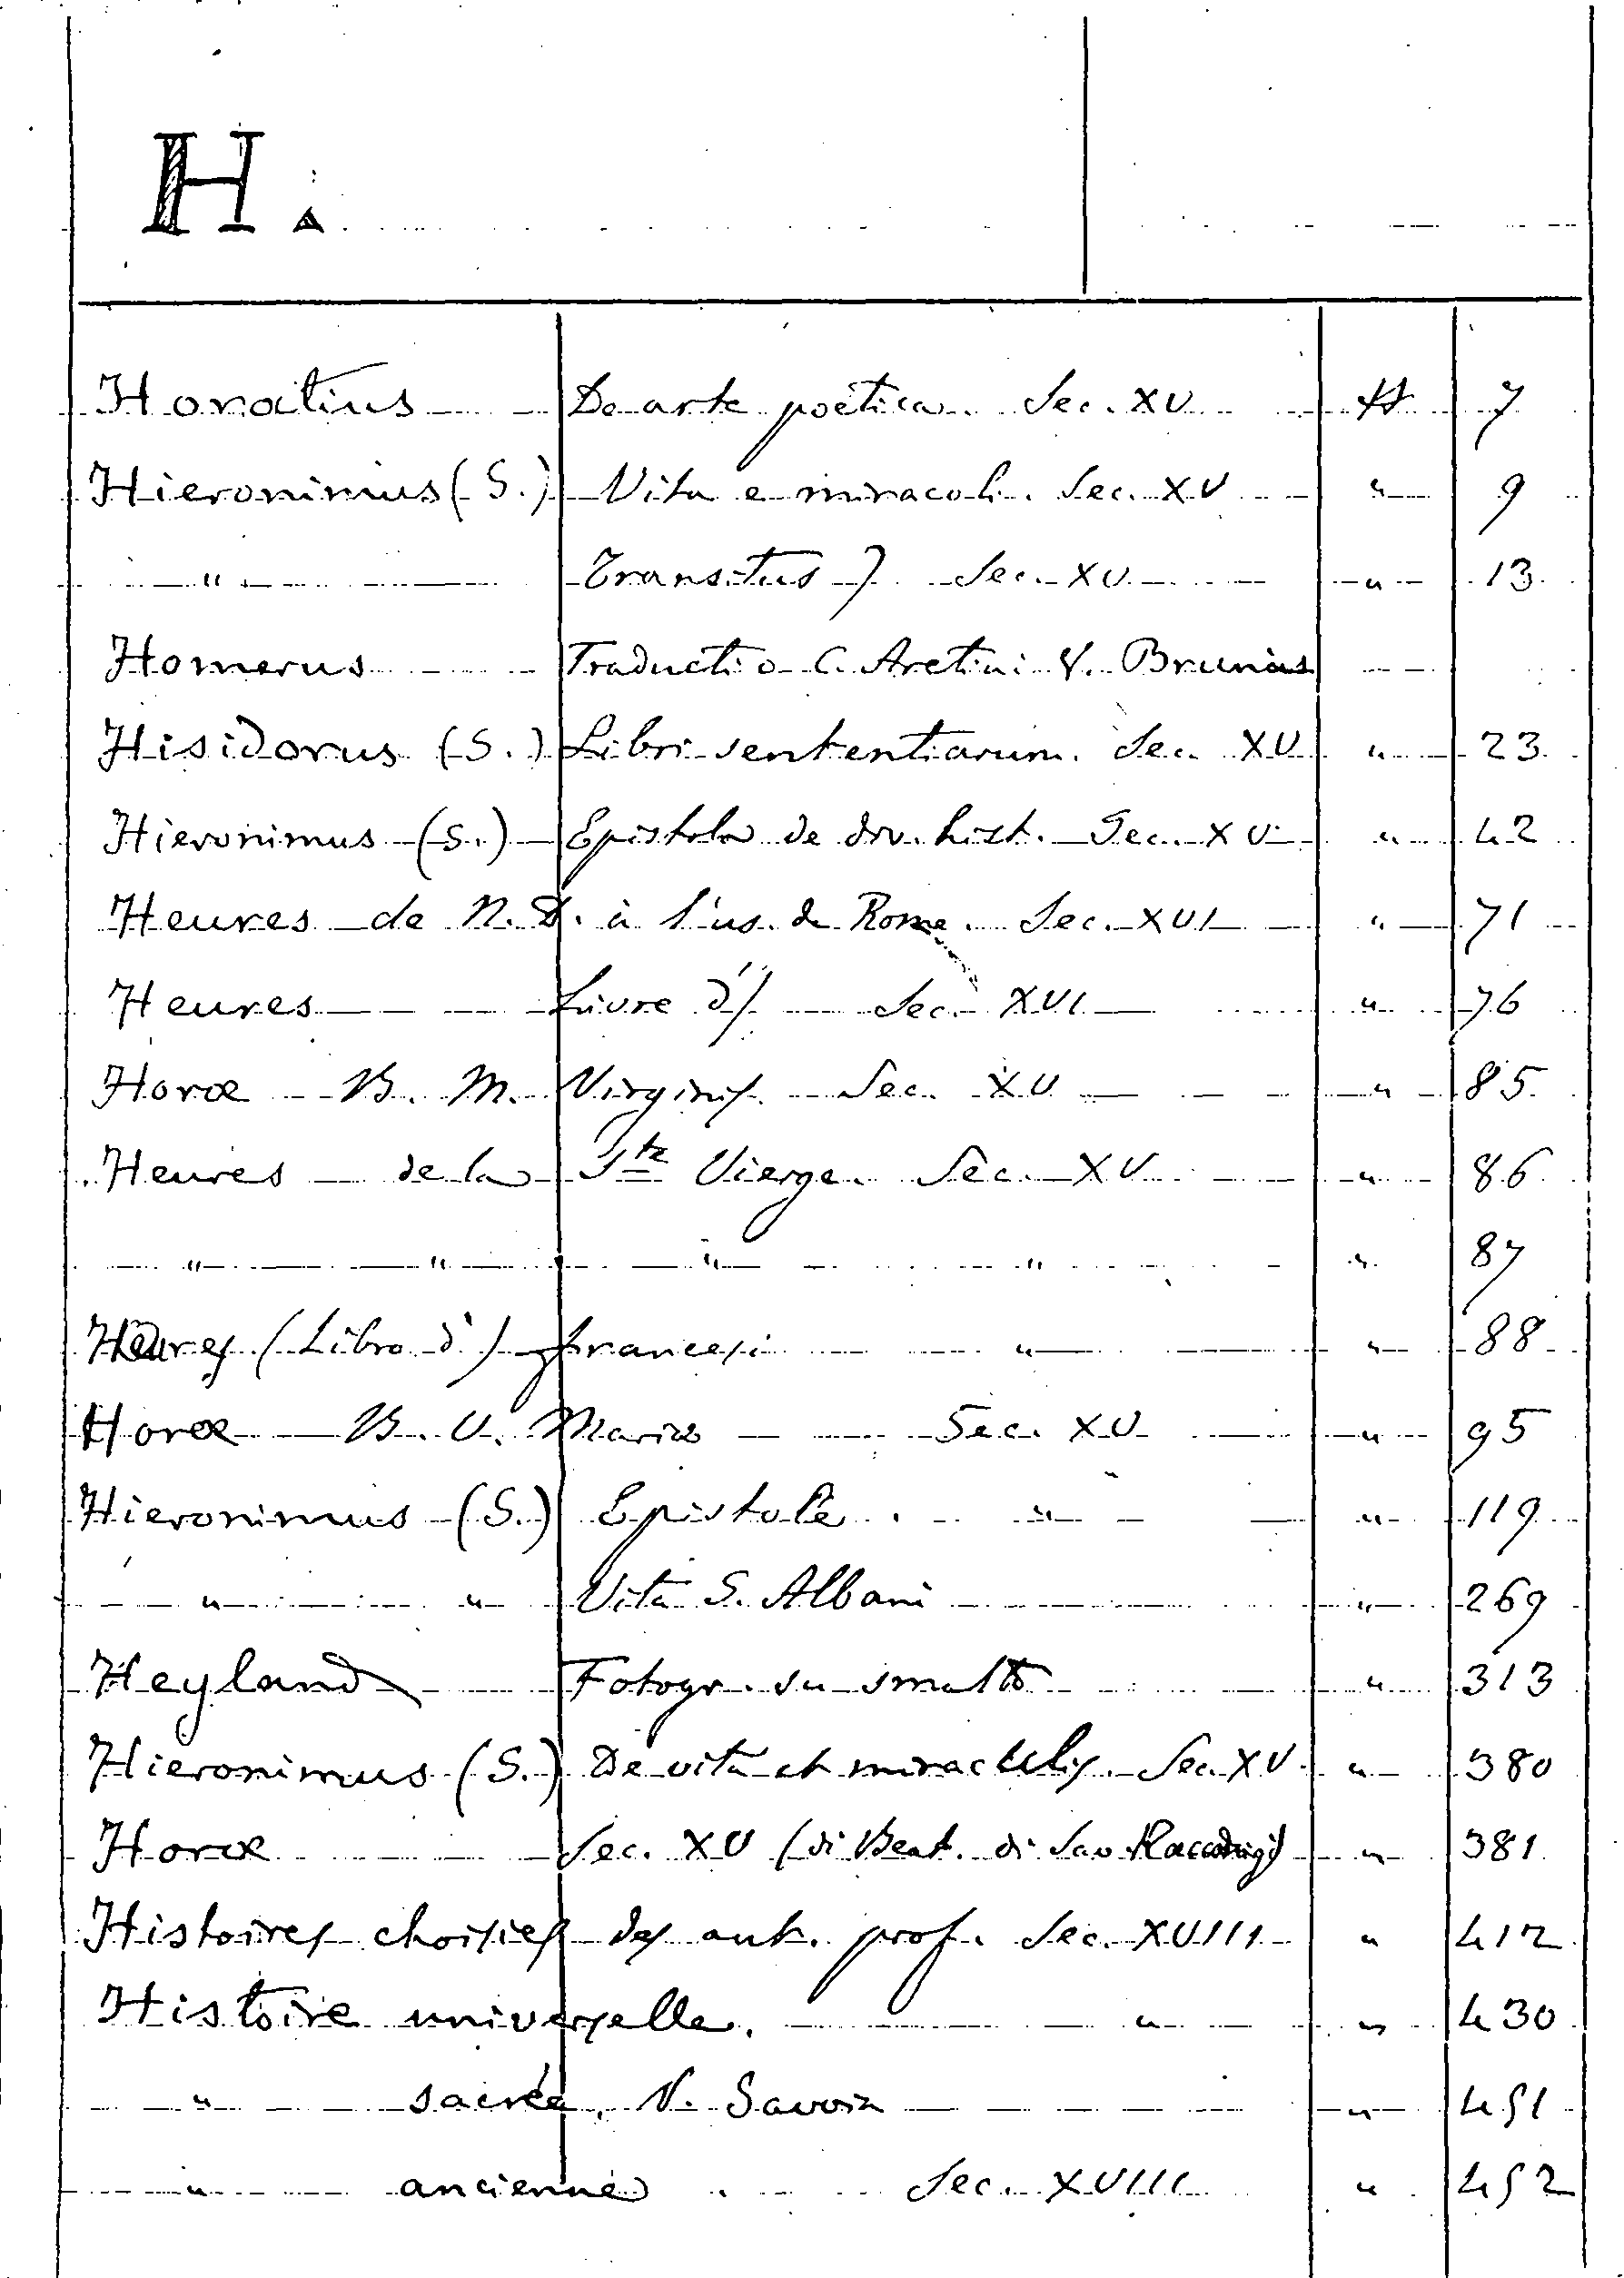 H.
Horatius De arte poëtica. Sec. XV 7
Hieronimus (S.) Vita e miracoli. Sec. XV " 9
" Transitus) Sec. XV " 13
Homerus Traductio C. Aretini V. Brunius
Hisidorus (S.) Libri sententiarum. Sec. XV " 23
Hieronimus (S.) Epistola de div. hist. Sec. XV " 42
Heures de N. D. à l'us. de Rome. Sec. XVI " 71
Heures Livre d') Sec. XVI " 76
Horæ B. M. Virginis. Sec. XV " 85
Heures de la Ste Vierge. Sec. XV " 86
" " " " " 87
Heures (Libro d') francesi " " 88
Horæ B. V. Mariæ Sec. XV " 95
Hieronimus (S.) Epistole. " " 119
" " Vita S. Albani " 269
Heyland Fotogr. su smalto " 313
Hieronimus (S.) De vita et miraculis. Sec. XV " 380
Horæ Sec. XV (di Beat. di Sav. Racconigi) " 381
Histoires choisies des aut. prof. Sec. XVIII " 412
Histoire universelle. " " 430
" sacrée. V. Savoia " 451
" ancienne. Sec. XVIII " 452